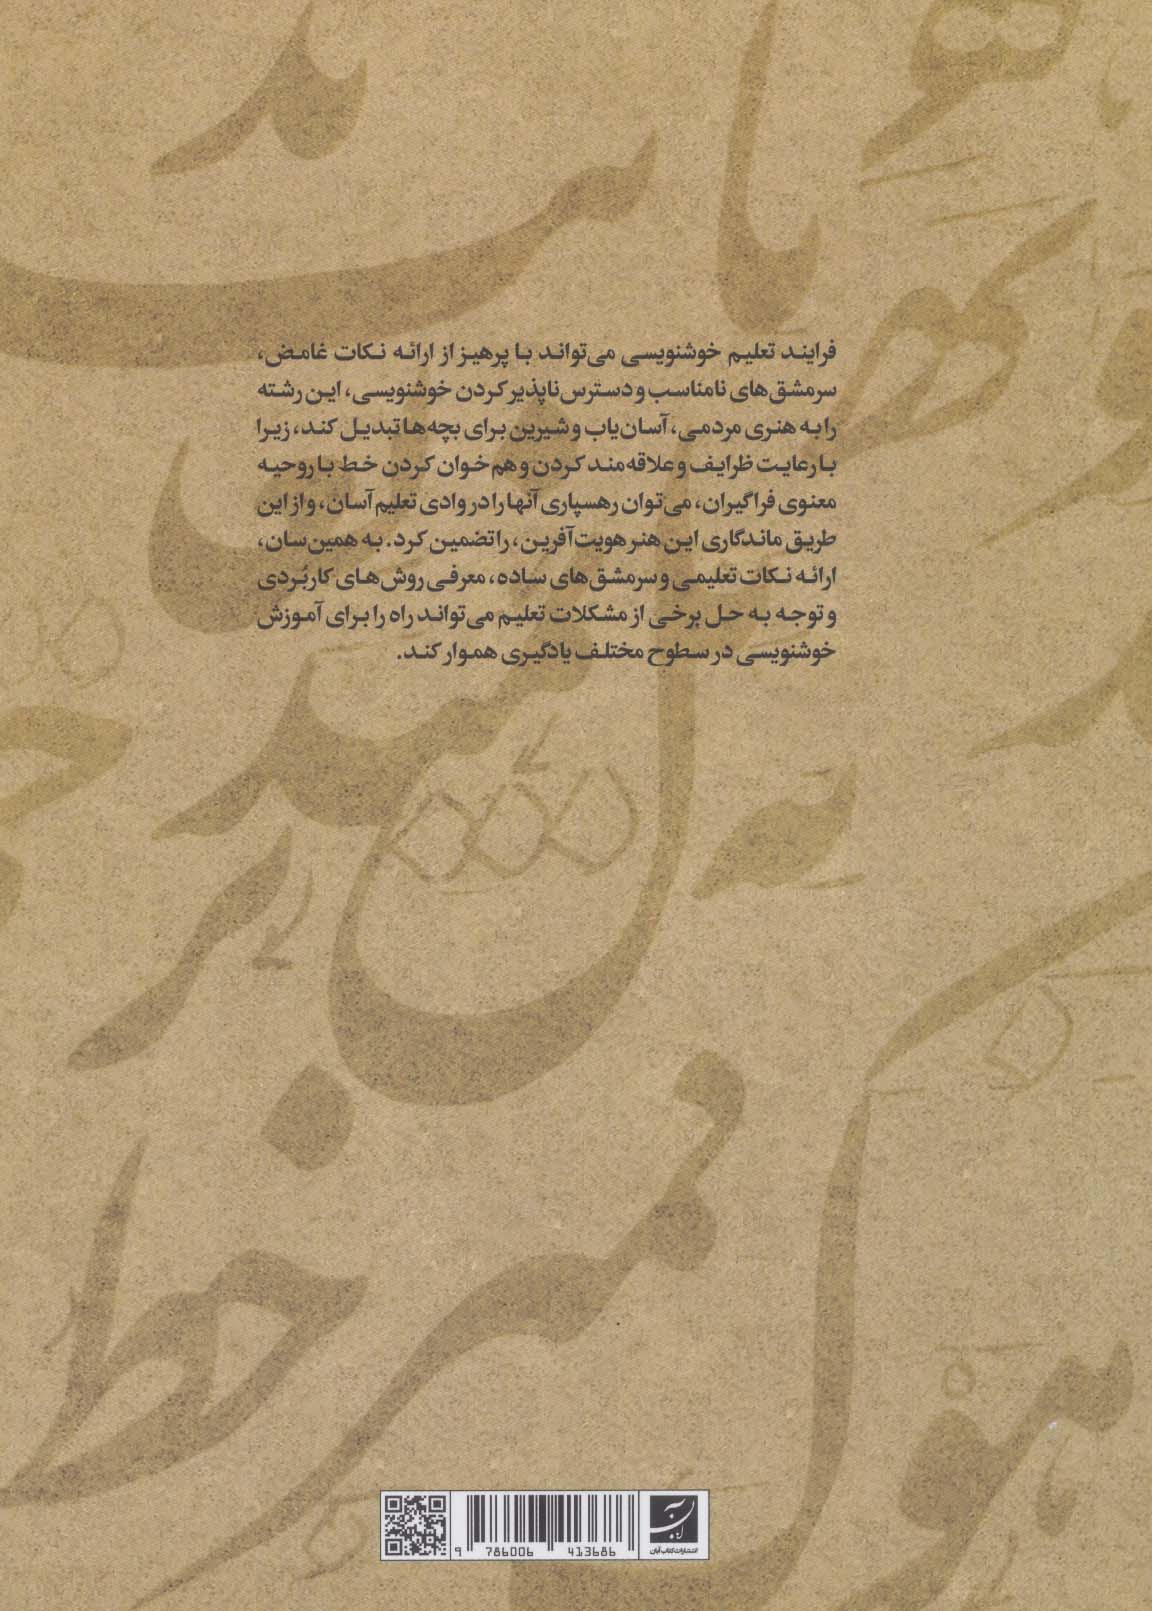 فرایند تعلیم خوشنویسی می‌تواند با پرهیز از ارائه نکات غامض،
سرمشق‌های نامناسب و دسترس‌ناپذیر کردن خوشنویسی، این رشته
را به هنری مردمی، آسان‌یاب و شیرین برای بچه‌ها تبدیل کند، زیرا
با رعایت ظرایف و علاقه‌مند کردن و هم‌خوان کردن خط با روحیه
معنوی فراگیران، می‌توان رهسپاری آنها را در وادی تعلیم آسان، و از این
طریق ماندگاری این هنر هویت‌آفرین، را تضمین کرد. به همین‌سان،
ارائه نکات تعلیمی و سرمشق‌های ساده، معرفی روش‌های کاربُردی
و توجه به حل برخی از مشکلات تعلیم می‌تواند راه را برای آموزش
خوشنویسی در سطوح مختلف یادگیری هموار کند.
بر
خط
9 786006 413686
آبان
انتشارات کتاب آبان